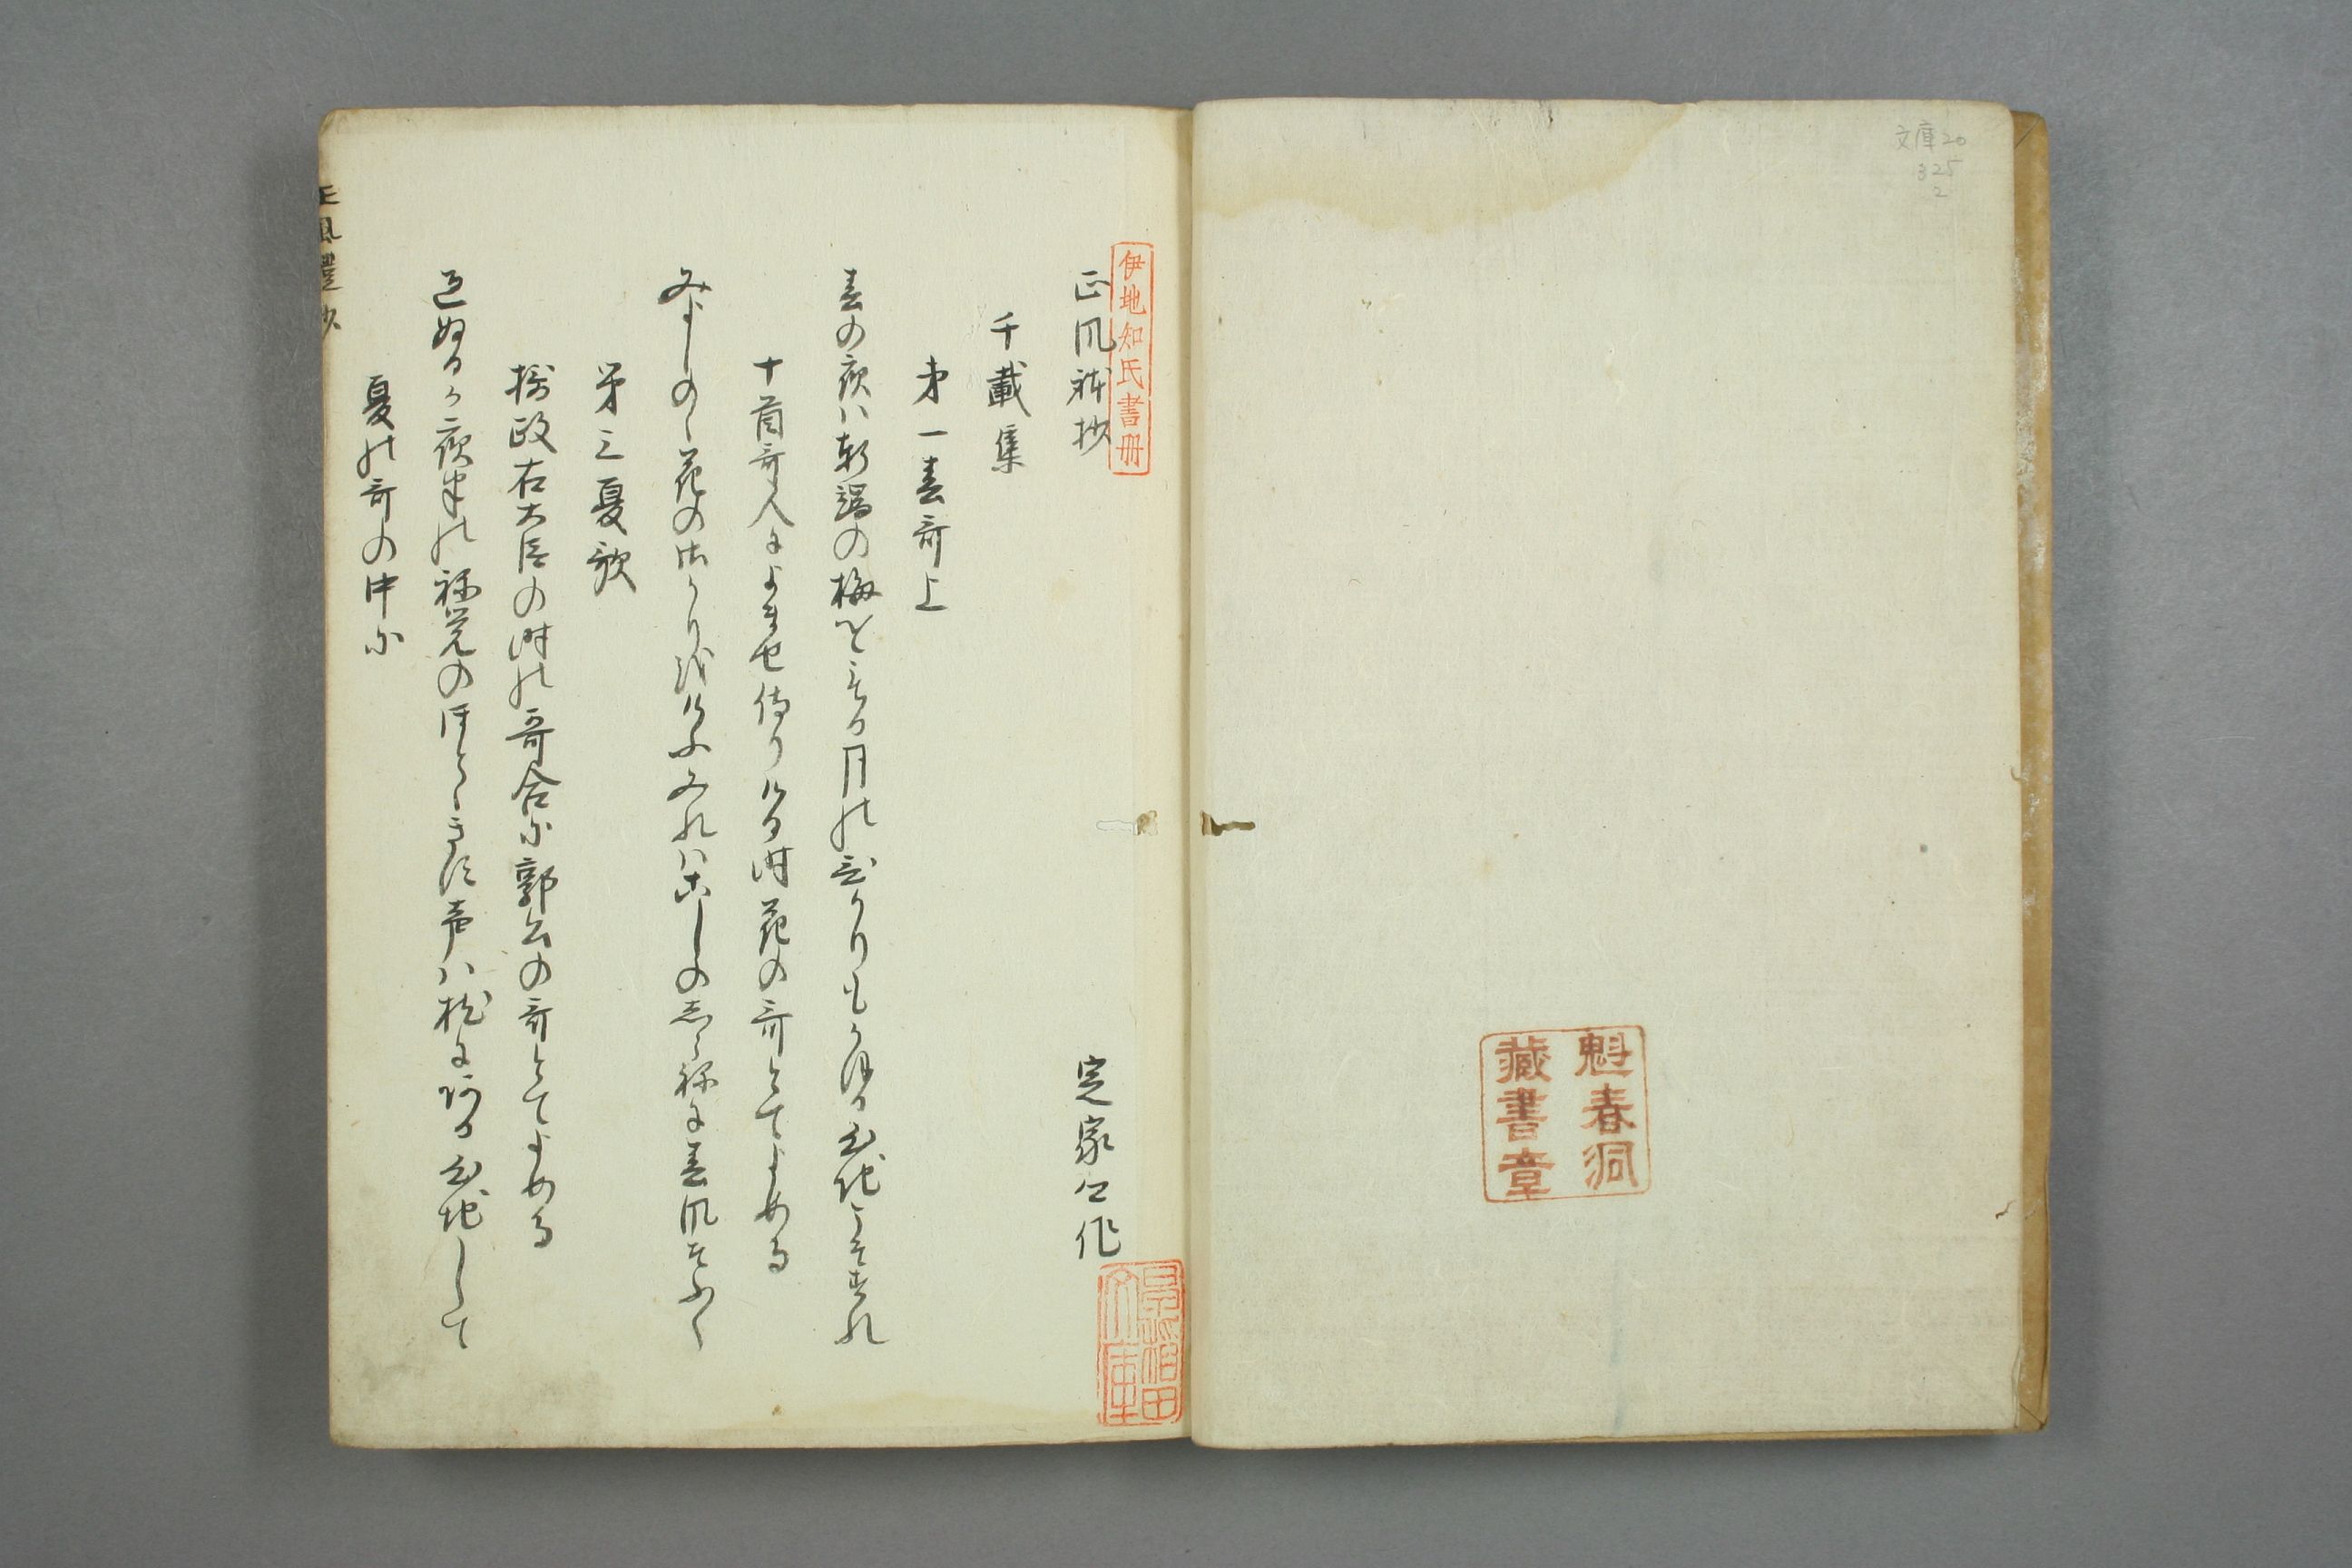 文庫20
325
2
魁春洞
藏書章
伊地知氏書冊
正風体抄 定家公作
千載集
第一春哥上
春の夜は軒端の梅をもる月のひかりもかほる心地こそすれ
十首哥人によませ侍りける時花の哥とてよめる
みよしのゝ花のさかりをけふみれはこしのしらねに春風そふく
第三夏歌
摂政右大臣の時の哥合に郭公の哥とてよめる
過ぬるか夜半の祢覚のほとゝきす声は枕にある心地して
夏の哥の中に
正風體抄